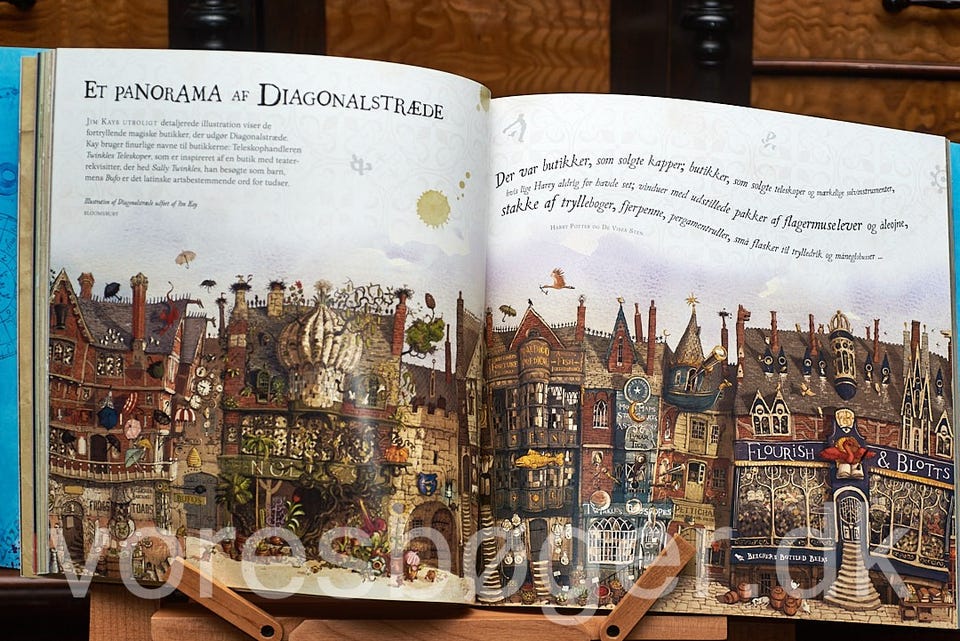 ET PANORAMA AF DIAGONALSTRÆDE
JIM KAYS UTROLIGT detaljerede illustration viser de
fortryllende magiske butikker, der udgør Diagonalstræde.
Kay bruger finurlige navne til butikkerne: Teleskophandleren
Twinkles Teleskoper, som er inspireret af en butik med teater-
rekvisitter, der hed Sally Twinkles, han besøgte som barn,
mens Bufo er det latinske artsbestemmende ord for tudser.
Illustration af Diagonalstræde udført af Jim Kay
BLOOMSBURY
Der var butikker, som solgte kapper; butikker, som solgte teleskoper og mærkelige sølvinstrumenter,
hvis lige Harry aldrig før havde set; vinduer med udstillede pakker af flagermuselever og åleøjne,
stakke af trylleboger, fjerpenne, pergamentruller, små flasker til trylledrik og måneglobusser –
HARRY POTTER OG DE VISES STEN
NOL
FLOURISH & BLOTTS
TWINKLES TELESCOPES
BUFO'S
FROGS TOADS
voresbøger.dk